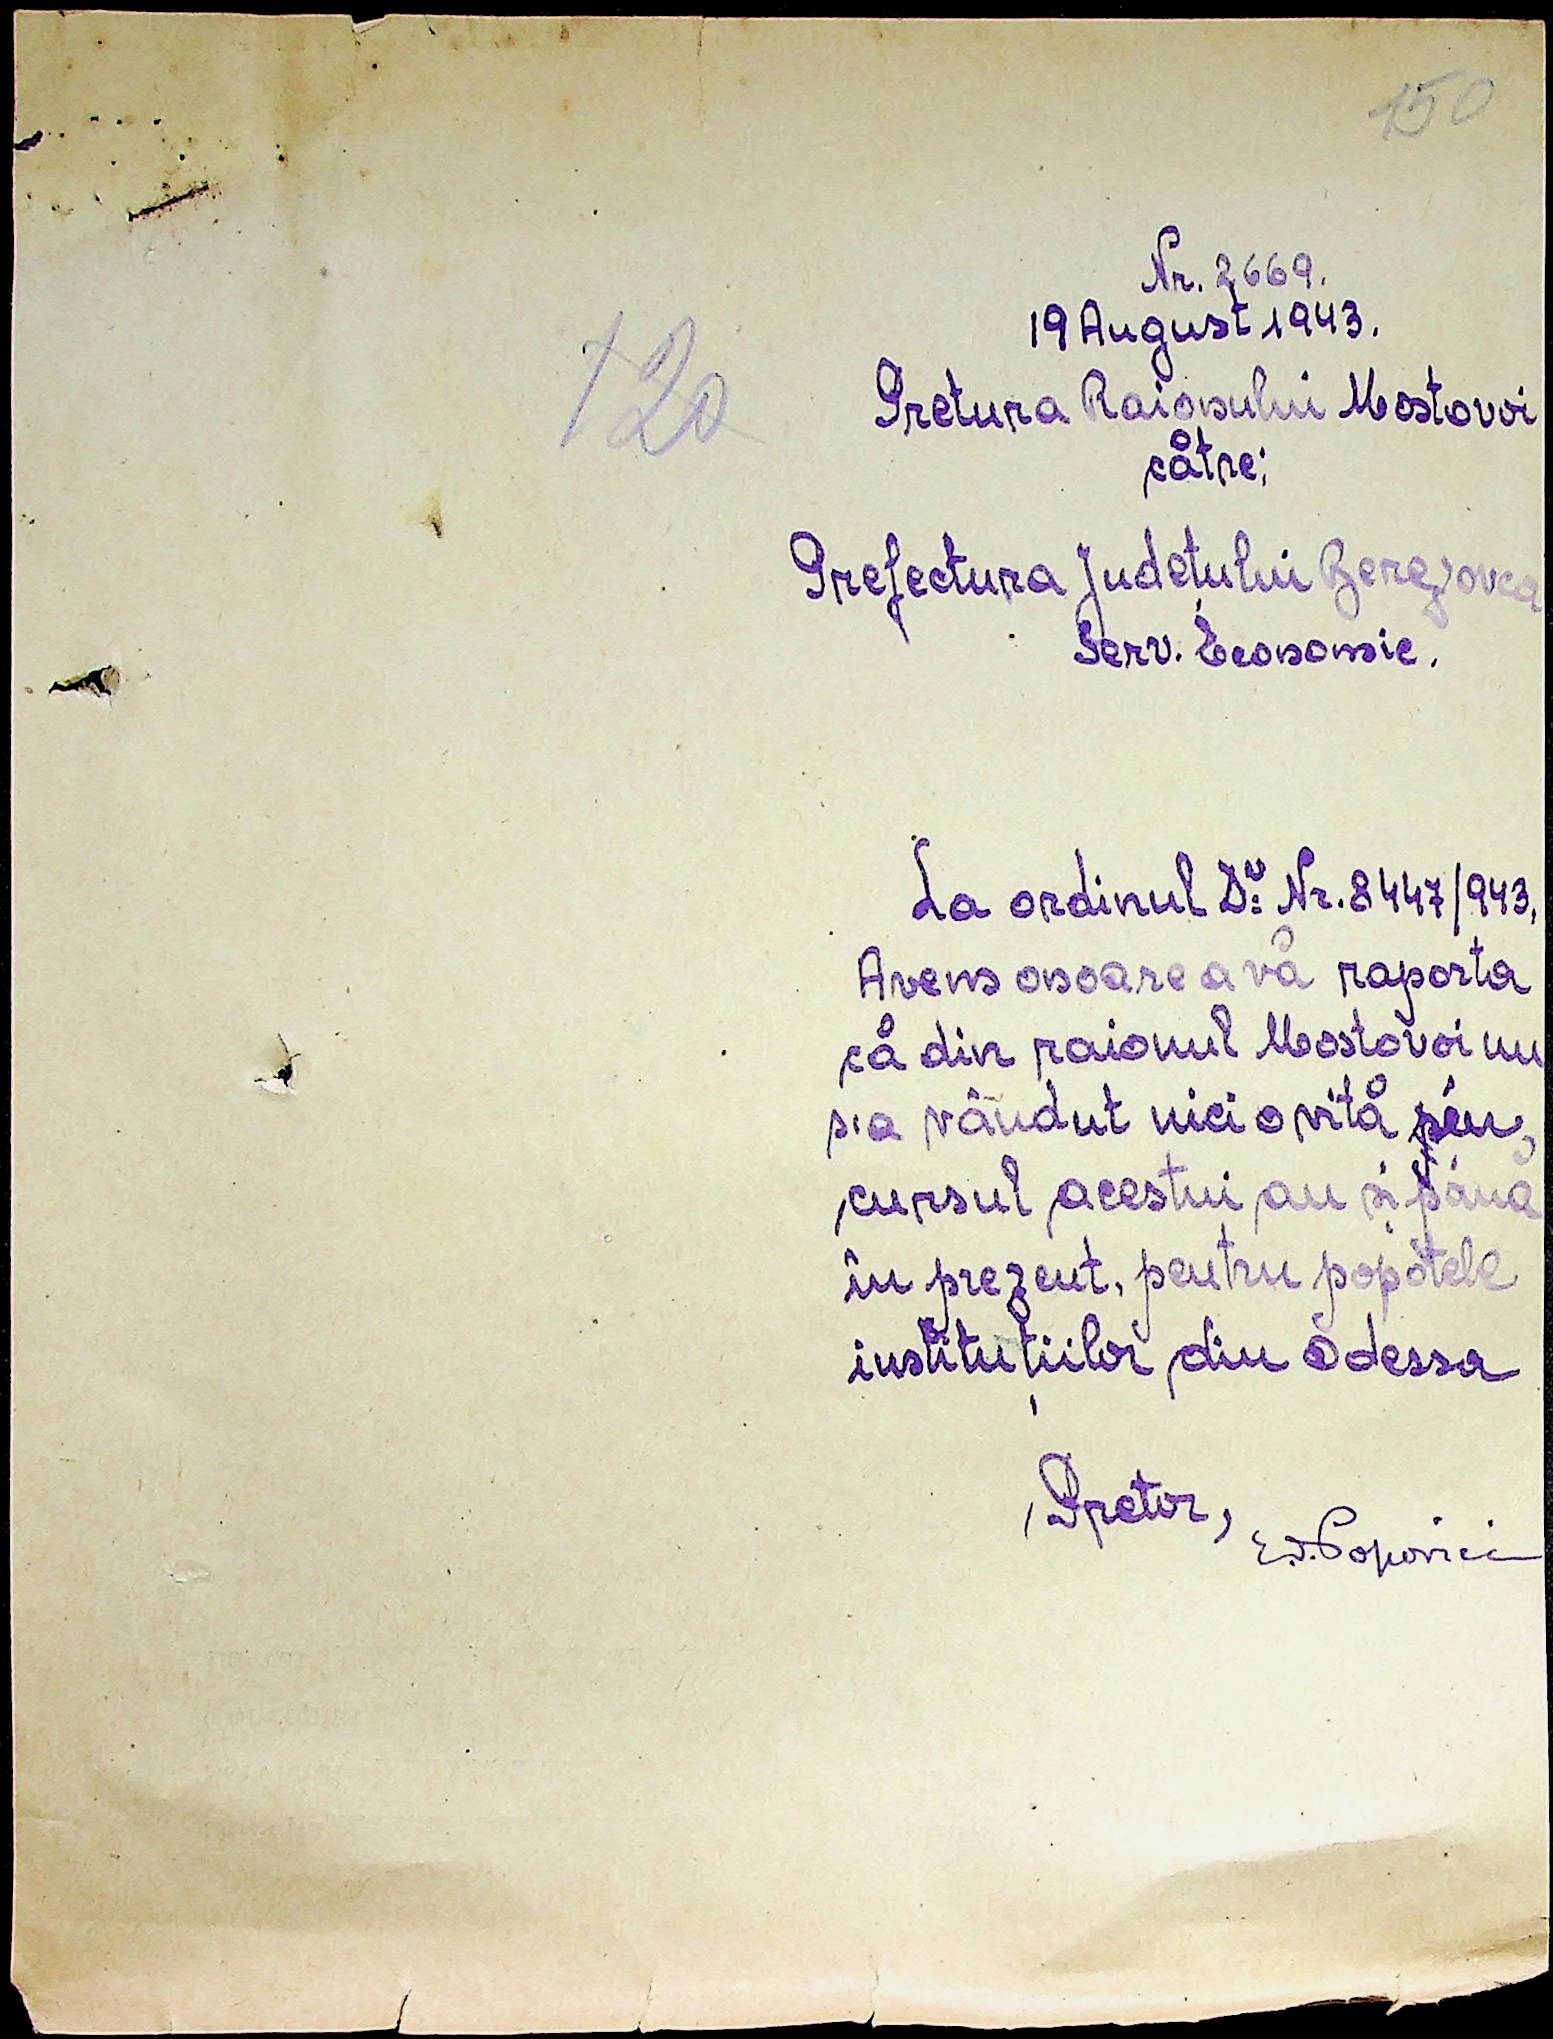 150
Nr. 2669.
19 August 1943.
120
Pretura Raionului Mostovoi
către;
Prefectura Județului Berezovca
Serv. Economic.
La ordinul Dv: Nr. 8447/943,
Avem onoare a vă raporta
că din raionul Mostovoi nu
s'a vândut nici o vită în
cursul acestui an și până
în prezent, pentru popotele
instituțiilor din Odessa
Pretor,
Popovici